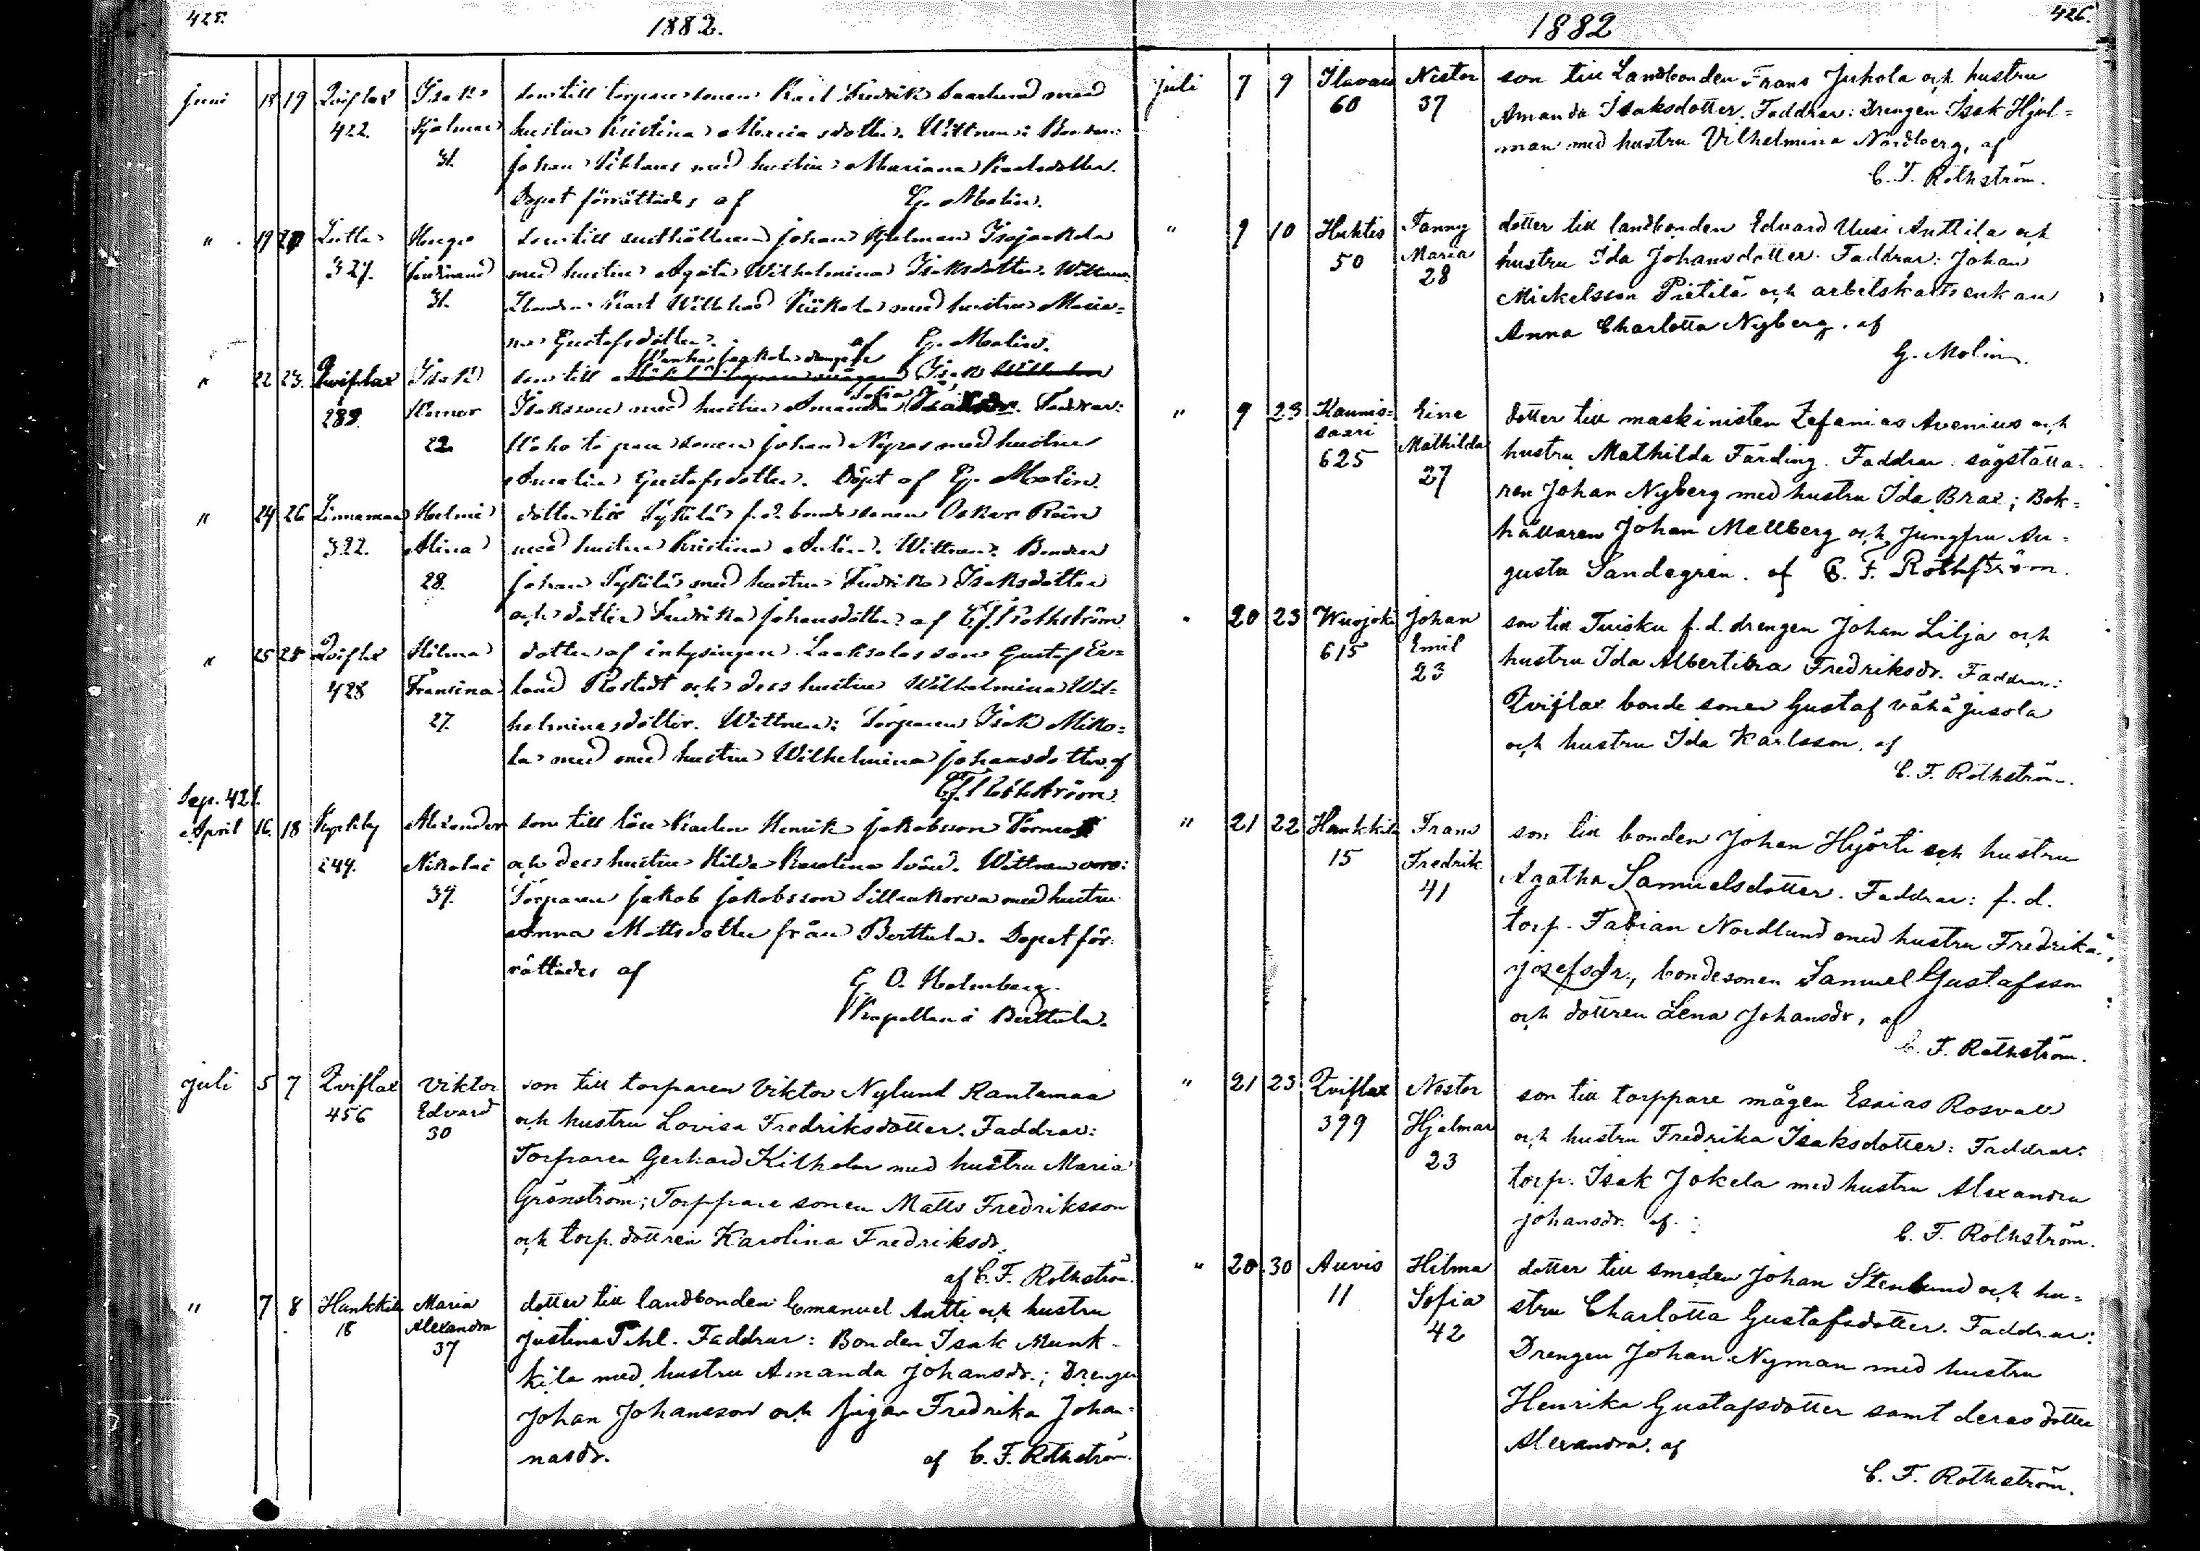 425.
1882.
juni 18 19 Qviflax Isak son till torparesonen Karl Fredrik Saarlund med
422. Hjalmar hustru Kristina Maria sdotter. Wittnen: Bonden:
31. Johan Siklaus med hustru Mariana Karlsdotter.
Dopet förrättades af G. Molin.
" 19 20 Hugo son till Johan Hjelman Isojaakola
327. Ferdinand med hustru Agata Wilhelmina Isaksdotter. Wittnen
31. Bonden Karl Wilhad Kiikola med hustru Maria=
na Gustafsdotter. af G. Molin.
Wanha Jaakola drengen
" 22 23 Qviflax Isak son till Isak
Sofia
283. Werner Isaksson med hustru Amanda Faddrar:
22. torparesonen Johan Nyroos med hustru
Amalia Gustafsdotter. Döpt af G. Molin.
" 24 26 Linnamaa Helmi dotter till Sykilä f.d. bondesonen Oskar Rein
322. Alina med hustru Kristina Antin. Wittnen: Bonden
28. Johan Sykilä med hustru Fredrika Isaksdotter
och dotter Fredrika Johansdotter af C.F. Rothström
" 25 28 Qviflax Hilma dotter af inhysingen Laaksolas son Gustaf Er=
428 Fransina land Rostedt och dess hustru Wilhelmina Wil=
27. helminasdotter. Wittnen: Torparen Isak Miko=
la med med hustru Wilhelmina Johansdotter. af
C.F. Rothström.
Sep. 421.
April 16. 18 Kyrkby Alexander son till Henrik Jakobsson
249. Nikolai och dess hustru Hilda Karolina Wittnen voro:
39. Torparen Jakob Jakobsson Sillankorva med hustru
Anna Mattsdotter från Berttula. Dopet för=
rättades af E. O. Holmberg.
Kapellan i Berttula.
juli 5 7 Qviflax Viktor son till torparen Viktor Nylund Rantamaa
456 Edvard och hustru Lovisa Fredriksdotter. Faddrar:
30 Torparen Gerhard Kilholm med hustru Maria
Grönström; Torppare sonen Matts Fredriksson
och torp. dottren Karolina Fredriksdr.
af C. F. Rothström.
" 7 8 Hankkila Maria dotter till landbonden Emanuel Antti och hustru
18 Alexandra Justina Pihl. Faddrar: Bonden Isak Munk-
37 kila med hustru Amanda Johansdr.; Drengen
Johan Johansson och pigan Fredrika Johan=
nasdr. af C. F. Rothström.
426.
1882
juli 7 9 Ilavais Nestor son till Landbonden Frans Juhola och hustru
60 37 Amanda Isaksdotter. Faddrar: Drengen Isak Hjel=
man med hustru Vilhelmina Nordberg, af
C. F. Rothström.
" 9 10 Huktis Fanny dotter till landbonden Edvard Uusi Anttila och
50 Maria hustru Ida Johansdotter. Faddrar: Johan
28 Mickelsson Pietilä och arbetskarlsenkan
Anna Charlotta Nyberg. af
G. Molin.
" 9 23 Kaunis= Eine dotter till maskinisten Zefanias Avenius och
saari Mathilda hustru Mathilda Färding. Faddrar: sågställa=
625 27 ren Johan Nyberg med hustru Ida Brax; Bok=
hållaren Johan Mellberg och Jungfru Au=
gusta Sandegren. af C. F. Rothström.
" 20 23 Wuojoki Johan son till Tuisku f. d. drengen Johan Lilja och
615 Emil hustru Ida Albertina Fredriksdr. Faddrar:
23 Qviflax bonde sonen Gustaf vähä jusola
och hustru Ida Karlsson. af
C. F. Rothström.
" 21 22 Hankkila Frans son till bonden Johan Hyörti och hustru
15 Fredrik Agatha Samuelsdotter. Faddrar: f. d.
41 torp. Fabian Nordlund med hustru Fredrika
Josefsdr., bondesonen Samuel Gustafsson
och dottren Lena Johansdr, af
C. F. Rothström.
" 21 23 Qviflax Nestor son till torppare mågen Esaias Rosvall
399 Hjalmar och hustru Fredrika Isaksdotter: Faddrar:
23 torp. Isak Jokela med hustru Alexandra
Johansdr. af. C. F. Rothström.
" 20 30 Auvis Hilma dotter till smeden Johan Stenlund och hu=
11 Sofia stru Charlotta Gustafsdotter. Faddrar:
42 Drengen Johan Nyman med hustru
Henrika Gustafsdotter samt deras dotter
Alexandra. af
C. F. Rothström.